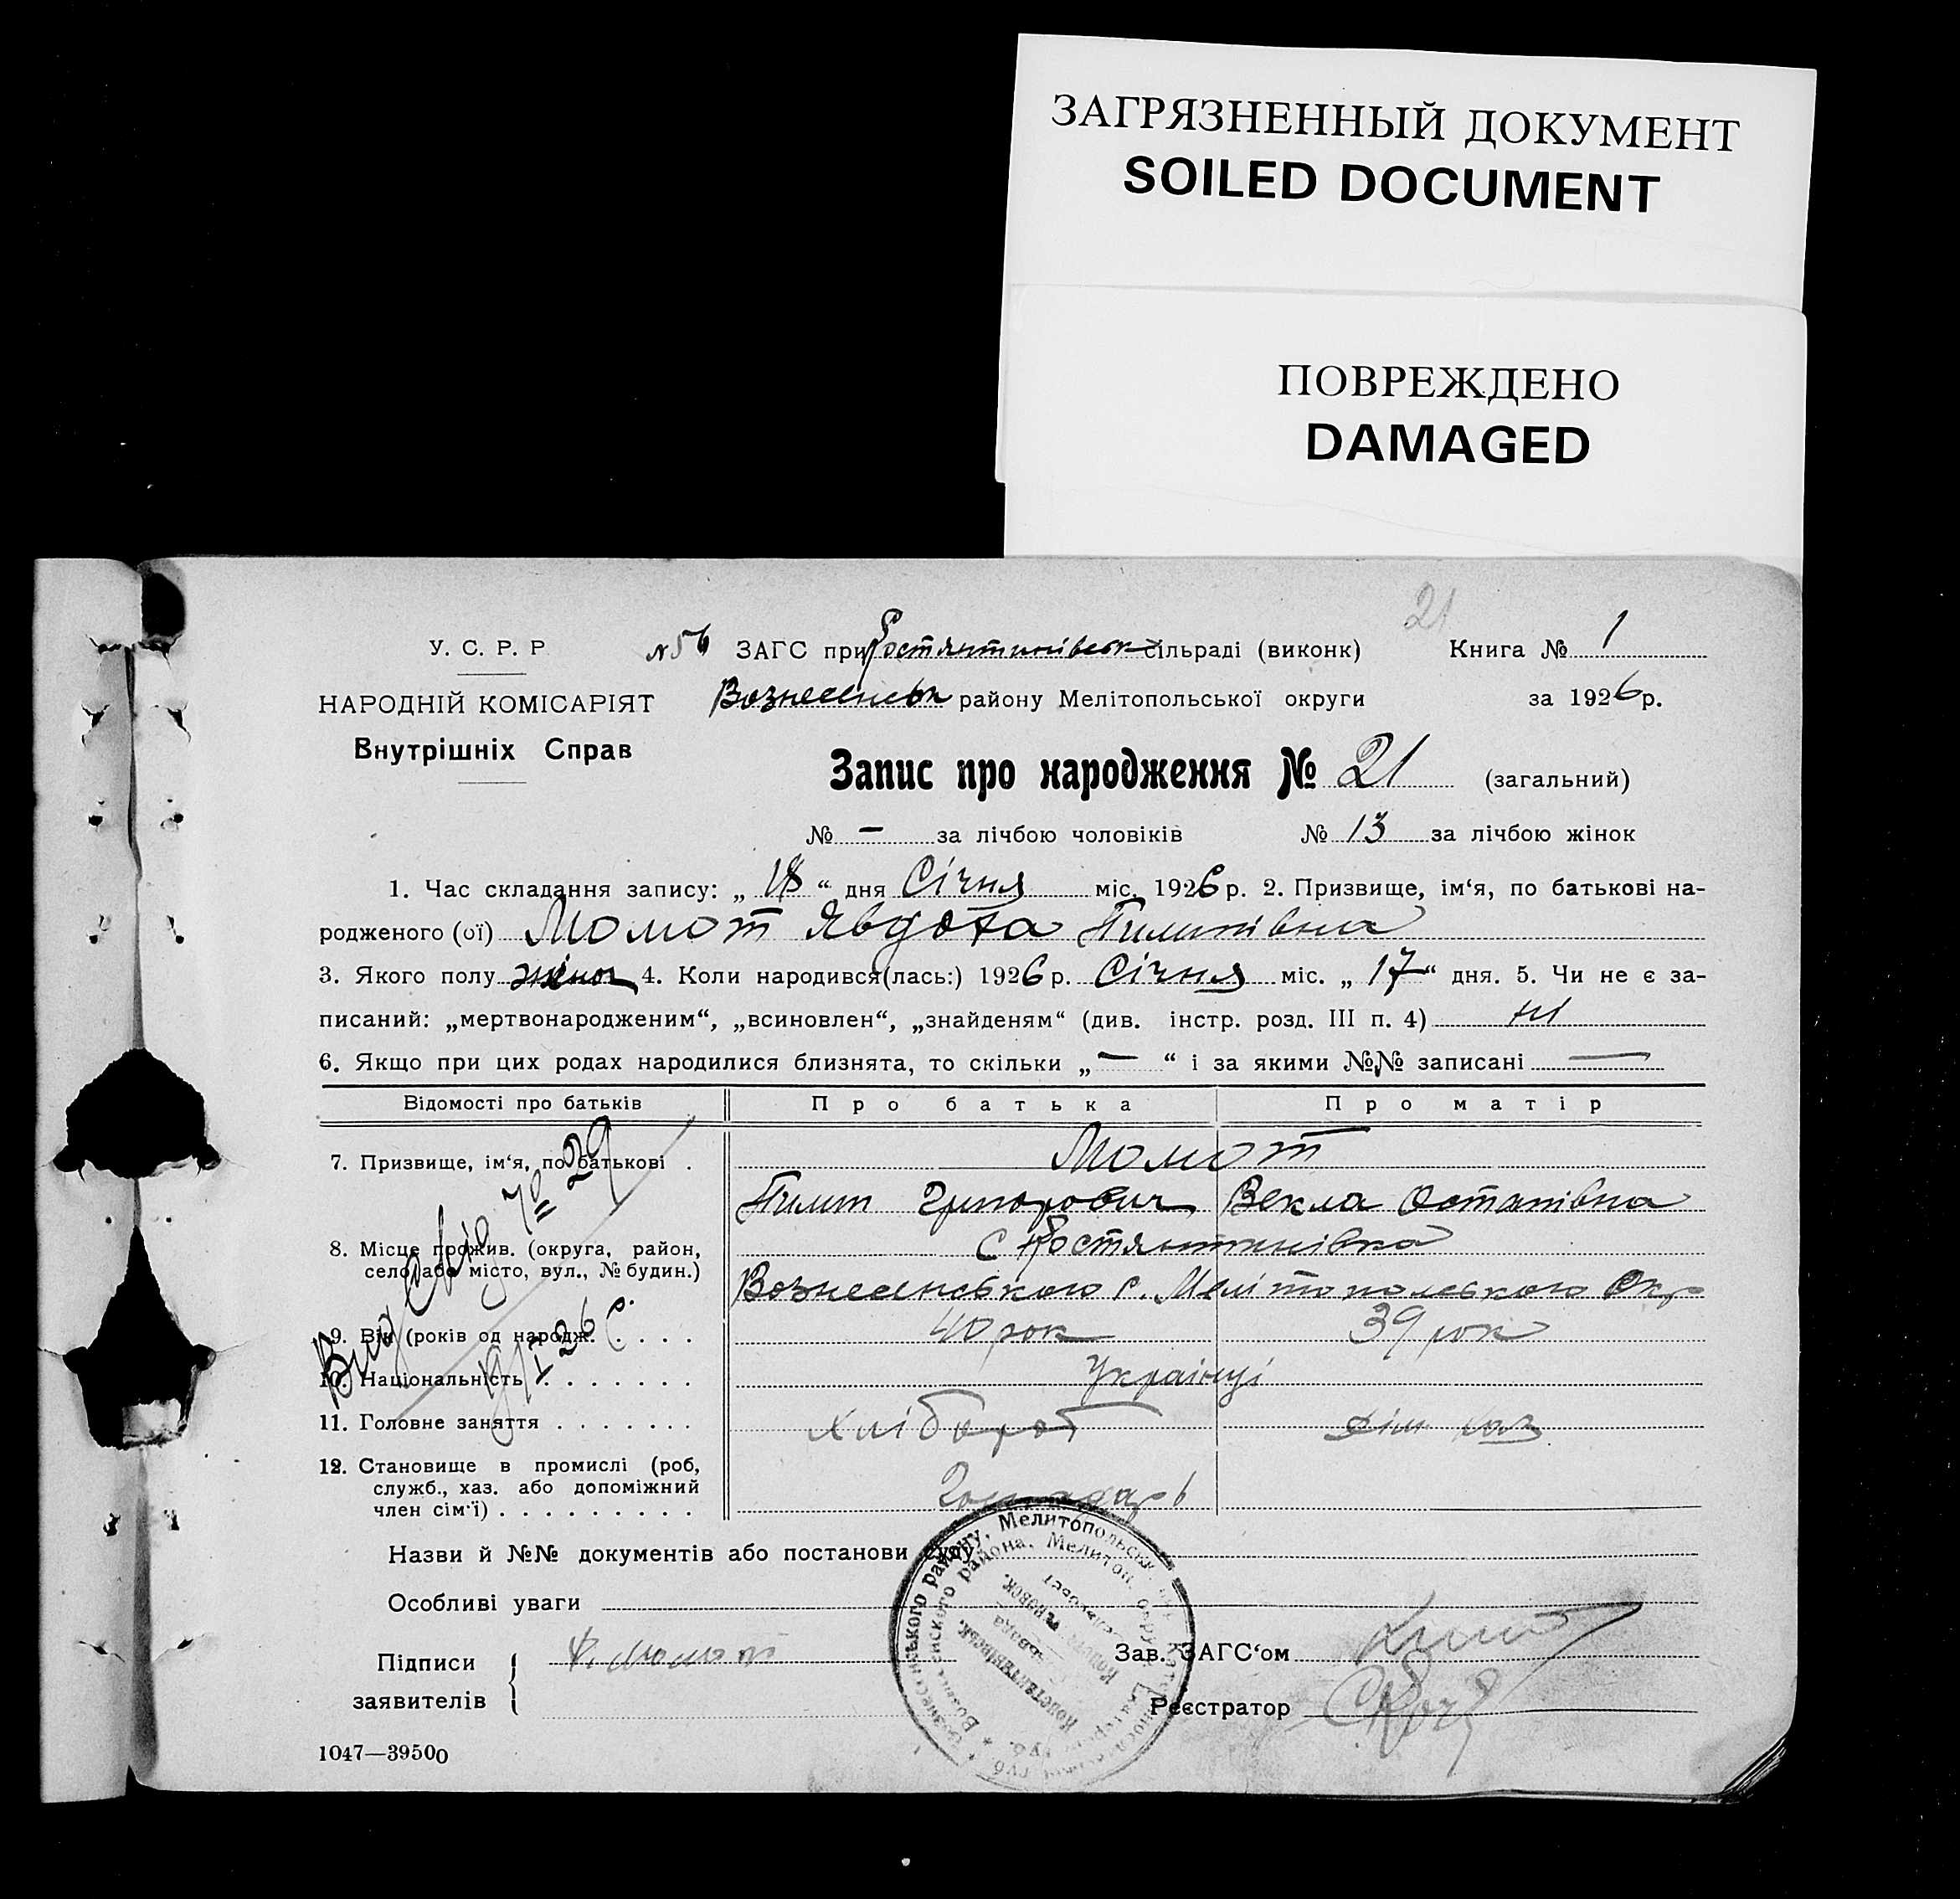 ЗАГРЯЗНЕННЫЙ ДОКУМЕНТ
SOILED DOCUMENT
ПОВРЕЖДЕНО
DAMAGED
21
У. С. Р. Р
НАРОДНІЙ КОМІСАРІЯТ
Внутрішніх Справ
№ 56 ЗАГС при Костянтинівськ сільраді (виконк) Книга № 1
Вознесенськ району Мелітопольської округи за 1926 р.
Запис про народження № 21 (загальний)
№ — за лічбою чоловіків № 13 за лічбою жінок
1. Час складання запису: „ 18 “ дня Січня міс. 1926 р. 2. Призвище, ім‘я, по батькові на-
родженого (ої) Момот Явдоха Пилипівна
3. Якого полу жіноч 4. Коли народився(лась:) 1926 р. Січня міс. „ 17 “ дня. 5. Чи не є за-
писаний: „мертвонародженим“, „всиновлен“, „знайденям“ (див. інстр. розд. III п. 4) ні
6. Якщо при цих родах народилися близнята, то скільки „ — “ і за якими №№ записані —
Відомості про батьків Про батька Про матір
7. Призвище, ім‘я, по батькові . Момот
Пилип Григорович Векла Остапівна
8. Місце прожив. (округа, район, село або місто, вул., № будин.) с Костянтинівка
Вознесенського р. Мелітопольського Окр
9. Вік (років од народж. . . . . 40 рок 39 рок
10. Національність . . . . . . . Українці
11. Головне заняття . . . . . . . Хлібороб дім хаз
12. Становище в промислі (роб,
служб., хаз. або допоміжний
член сім‘ї) . . . . . . . . . Господарь
Назви й №№ документів або постанови суду
Особливі уваги
Підписи
заявителів
Момот
Зав. ЗАГС‘ом
Реєстратор
1047—39500